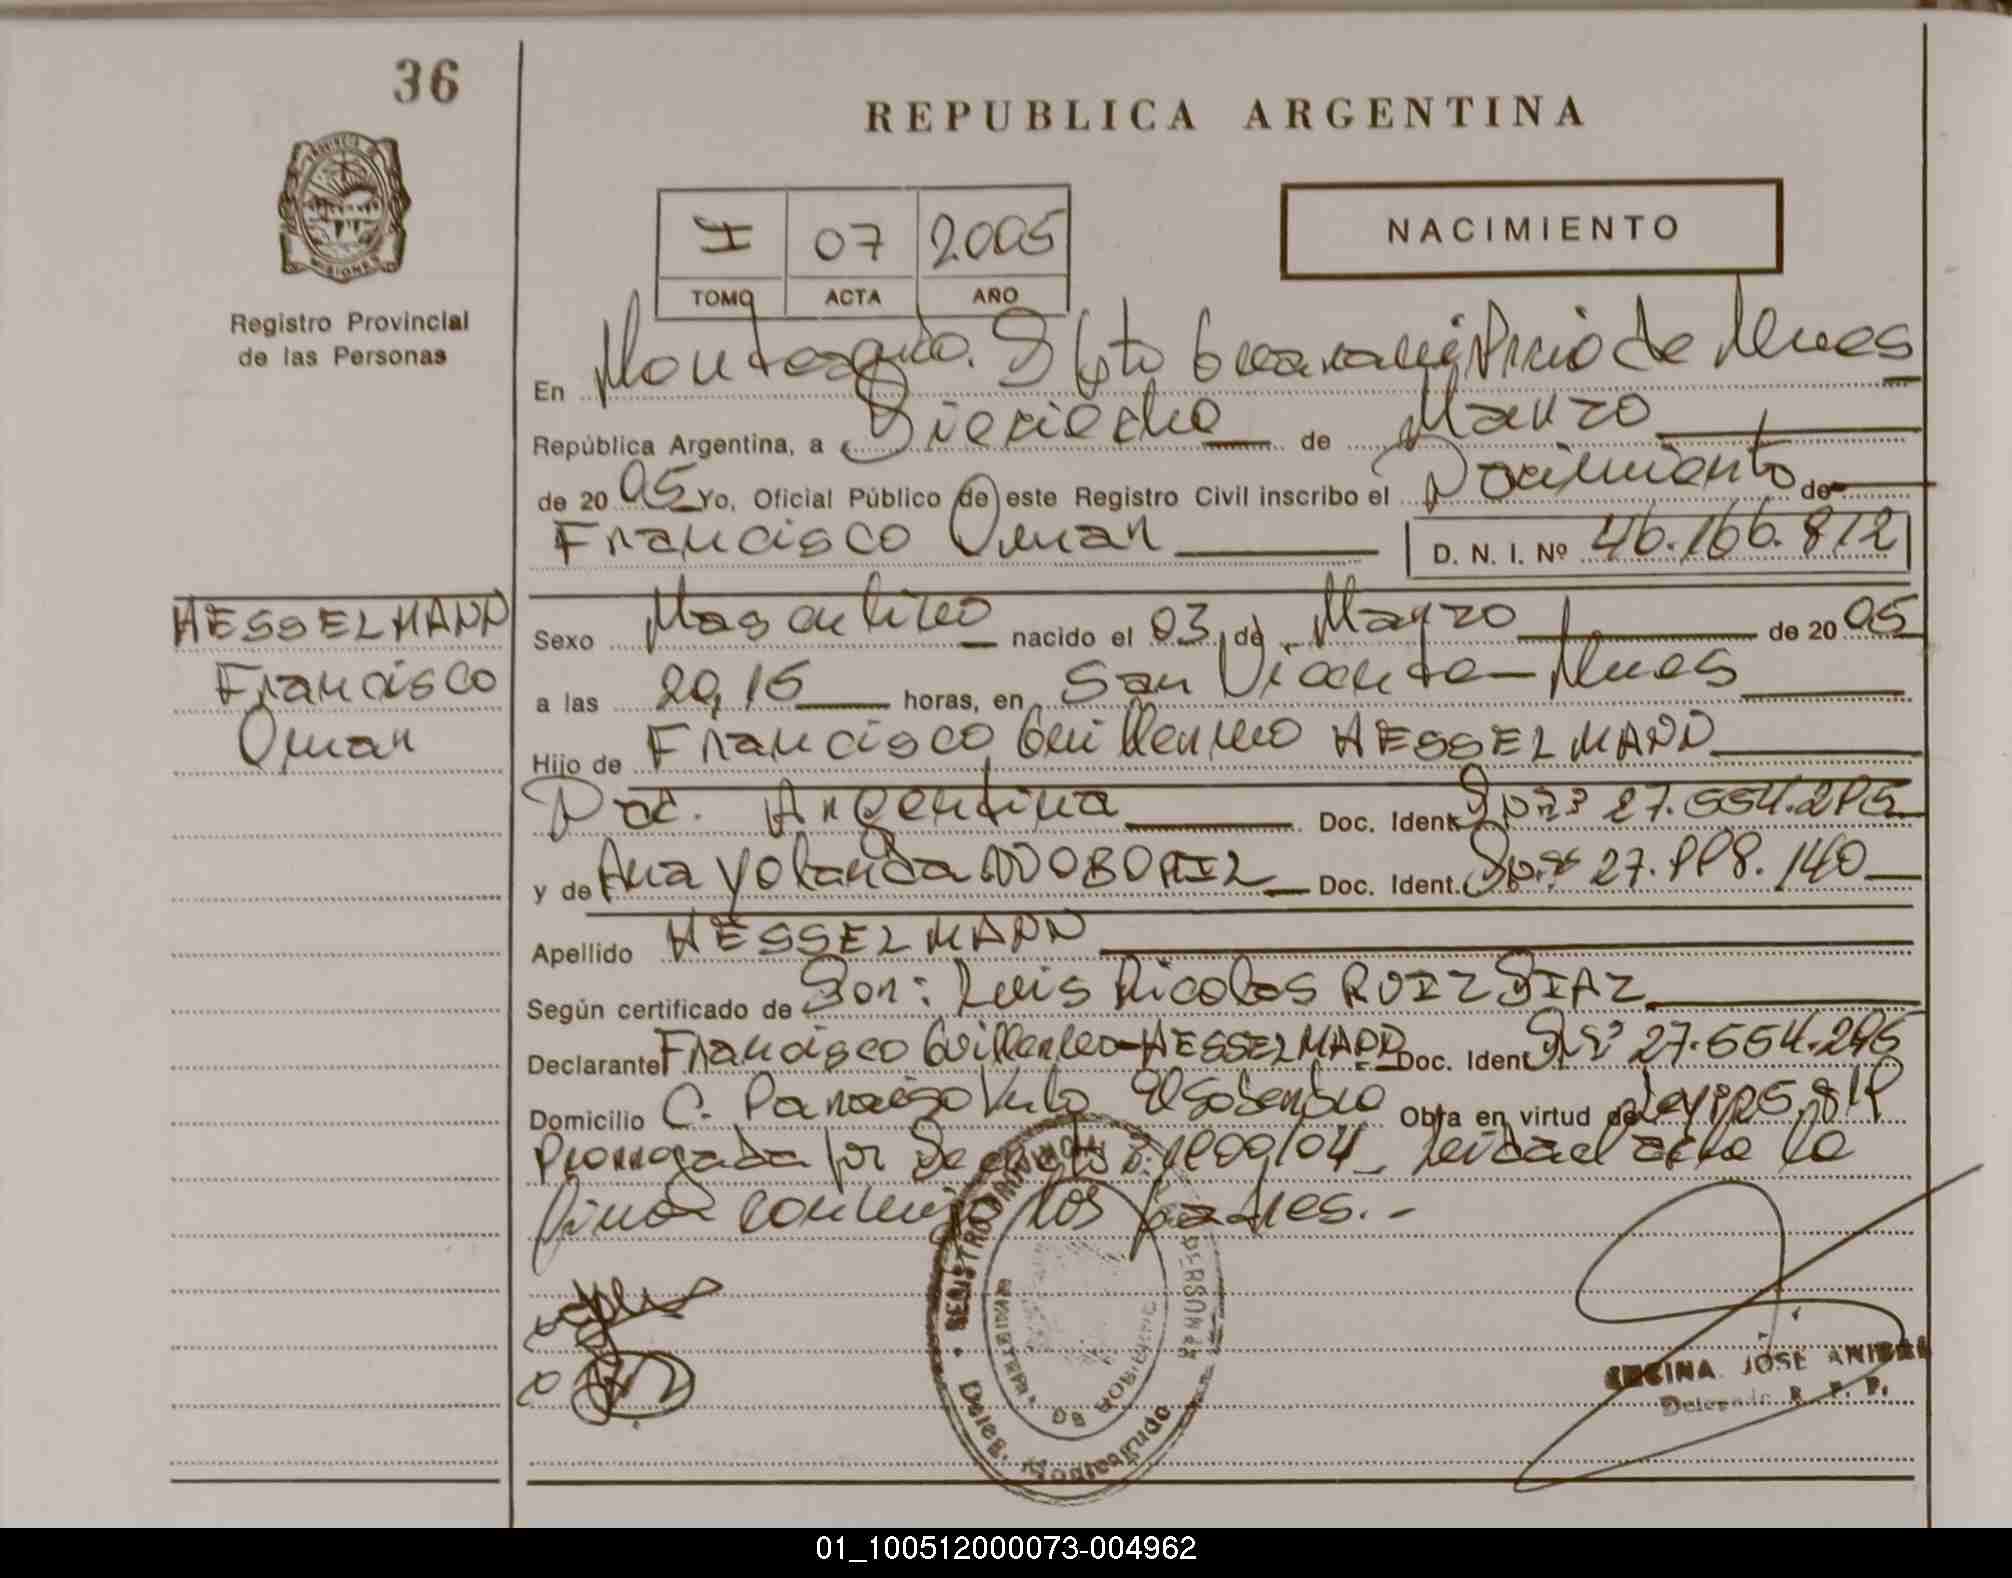 36
REPUBLICA ARGENTINA
PROVINCIA DE
MISIONES
Registro Provincial
de las Personas
NACIMIENTO
I 07 2005
TOMO ACTA AÑO
En Monteagudo. Dpto Guarani Pcio de Mnes
República Argentina, a Dieciocho de Marzo
de 20 05 Yo, Oficial Público de este Registro Civil inscribo el Nacimiento de
Francisco Omar D. N. I. Nº 46.166.812
HESSELMANN
Francisco
Omar
Sexo Masculino nacido el 03 de Marzo de 20 05
a las 20,15 horas, en San Vicente - Mnes
Hijo de Francisco Guillermo HESSELMANN
Nac. Argentina Doc. Ident. 27.554.295
y de Ana Yolanda Doc. Ident. 27.998.140
Apellido HESSELMANN
Según certificado de Don: Luis Nicolas RUIZ DIAZ
Declarante Francisco Guillermo HESSELMANN Doc. Ident. 27.554.295
Domicilio C. Paraiso Obra en virtud de Ley 25.819
Prorrogada por Decreto Leida el acta la
firman conmigo los padres.-
REGISTRO PERSONAS
MINISTERIO DE GOBIERNO
Deleg. Monteagudo
ENCINA JOSE ANIBAL
Delegado R. P. P.
01_100512000073-004962